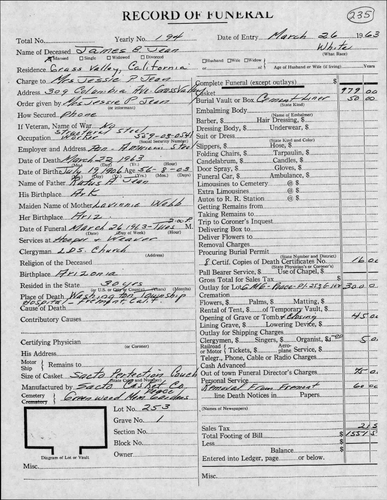 RECORD OF FUNERAL
235
Total No. Yearly No. 194 Date of Entry March 26 1963
Name of Deceased James B. Jean White
(What Race)
Married Single Widowed Divorced Husband or Wife Widow or
Residence Grass Valley, California Age of Husband or Wife (if living)
Charge to Mrs Jessie P. Jean
Address 309 Columbia Ave Grass Valley
Order given by Mrs Jessie P. Jean
How Secured Phone
If Veteran, of War
Occupation Structural Steel Worker 559-03-0541
(Social Security Number)
Employer and Address Pan-American Steel
Date of Death March 22, 1963
Date of Birth July 19, 1906 Age 56-8-03
Name of Father Rufus A. Jean
His Birthplace Ark
Maiden Name of Mother Lavinnia Webb
Her Birthplace Ariz.
Date of Funeral March 26 1963-Tues 2:00 P. M.
Services at Hooper & Weaver
Clergyman LDS. Church
Religion of the Deceased
Birthplace Arizona
Resided in the State 30 yrs
Place of Death Washington Township Hospital - Fremont, Calif.
Cause of Death
Contributory Causes
Certifying Physician
(or Coroner)
His Address
Motor Ship Remains to
Size of Casket Sacto Protection Couch
Manufactured by Sacto Casket Co.
Cemetery
Crematory Greenwood Mem Gardens
Lot No. 253
Grave No. 1
Section No.
Block No.
Owner
Diagram of Lot or Vault
Misc.
Complete Funeral (except outlays) $
Casket 979 00
Burial Vault or Box Cement Liner 50 00
(Name of Embalmer)
Embalming Body
Barber, $ Hair Dressing, $
Dressing Body, $ Underwear, $
Suit or Dress
Slippers, $ Hose, $
Folding Chairs, $ Tarpaulin, $
Candelabrum, $ Candles, $
Door Spray, $ Gloves, $
Funeral Car, $ Ambulance, $
Limousines to Cemetery @ $
Extra Limousines @ $
Autos to R. R. Station @ $
Getting Remains from
Taking Remains to
Trip to Coroner's Inquest
Delivering Box to
Deliver Flowers to
Removal Charges
Procuring Burial Permit
(State Number and District)
Certif. Copies of Death Certificate No. 16 00
(State Physician's or Coroner's)
Pall Bearer Service, $ Use of Chapel, $
Gross Total for Sales Tax $
Outlay for Lot 300 00
Flowers, $ Palms, $ Matting, $
Rental of Tent, $ of Temporary Vault, $
Opening of Grave or Tomb & Closing 45 00
Lining Grave, $ Lowering Device, $
Outlay for Shipping Charges
Clergymen, $ Singers, $ Organist, $ 5 00
Railroad or Motor Tickets, $ Aero-plane Service, $
Telegr., Phone, Cable or Radio Charges
Cash Advanced
Out of town Funeral Director's Charges 75 00
Personal Service
Removal From Fremont 60 00
line Death Notices in Papers
(Names of Newspapers)
Sales Tax
Total Footing of Bill $
Less
Balance $
Entered into Ledger, page or below.
Misc.